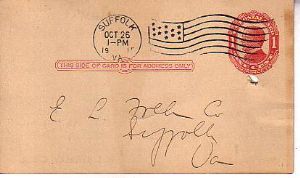 SUFFOLK
OCT 26
1-PM
19
VA.
1
THIS SIDE OF CARD IS FOR ADDRESS ONLY
E L Co
Suffolk
Va